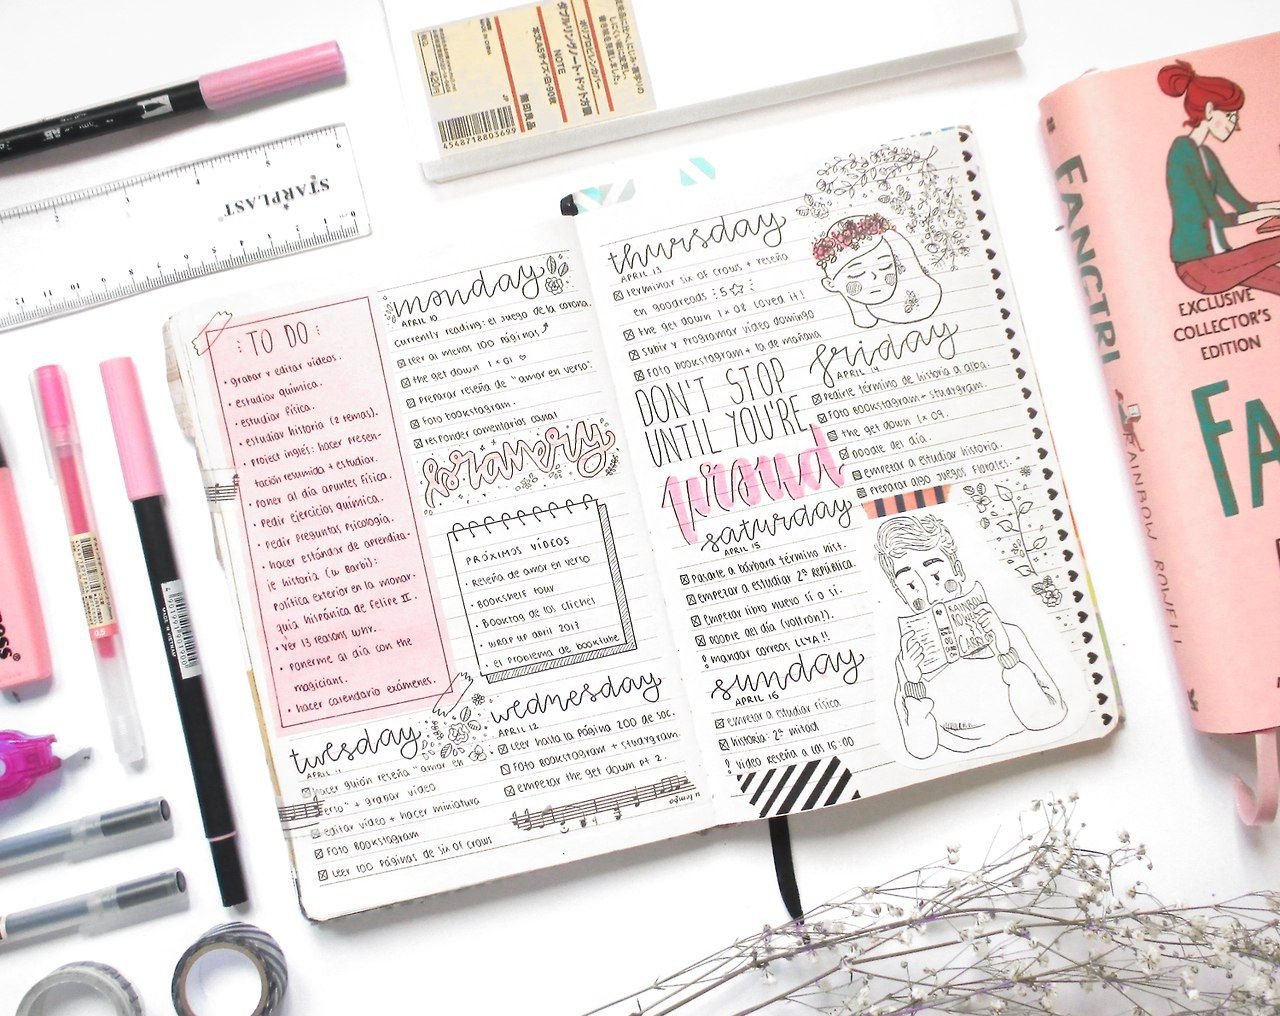 STARPLAST
ダブルリングノート・ドット方眼
NOTE
無印良品
4548718803699
TO DO
• grabar y editar vídeos.
• estudiar química.
• estudiar física.
• estudiar historia (2 temas).
• project inglés: hacer presen-
tación resumida + estudiar.
• poner al día apuntes física.
• pedir ejercicios química.
• pedir preguntas psicología.
• hacer estándar de aprendiza-
je historia (w Barbi):
política exterior en la monar-
quía hispánica de Felipe II.
• ver 13 reasons why.
• ponerme al día con the
magicians.
• hacer calendario exámenes.
monday
APRIL 10
currently reading: el juego de la corona.
leer al menos 100 páginas
the get down 1×01
preparar reseña de "amor en verso".
foto bookstagram.
responder comentarios canal
bravery
PRÓXIMOS VÍDEOS
• reseña de amor en verso
• bookshelf tour
• booktag de los clichés
• wrap up abril 2017
• el problema de booktube
tuesday
APRIL 11
hacer guión reseña "amor en
verso" + grabar vídeo
editar vídeo + hacer miniatura
foto bookstagram
leer 100 páginas de six of crows
wednesday
APRIL 12
leer hasta la página 200 de soc.
foto bookstagram + studygram.
empezar the get down pt 2.
thursday
APRIL 13
terminar six of crows + reseña
en goodreads : 5 ☆ :
the get down 1×08 loved it!
subir y programar vídeo domingo
foto bookstagram + la de mañana
DON'T STOP
UNTIL YOU'RE
proud
friday
APRIL 14
pedirle término de historia a alba.
foto bookstagram + studygram.
the get down 1×09.
doodle del día.
empezar a estudiar historia.
preparar algo juegos florales.
saturday
APRIL 15
pasarle a bárbara término hist.
empezar a estudiar 2ª república.
empezar libro nuevo sí o sí.
doodle del día
! mandar correos LLYA!!
sunday
APRIL 16
empezar a estudiar física
historia: 2ª mitad
! vídeo reseña a las 16:00
RAINBOW
ROWELL
FANGIRL
RAINBOW ROWELL
EXCLUSIVE
COLLECTOR'S
EDITION
FA